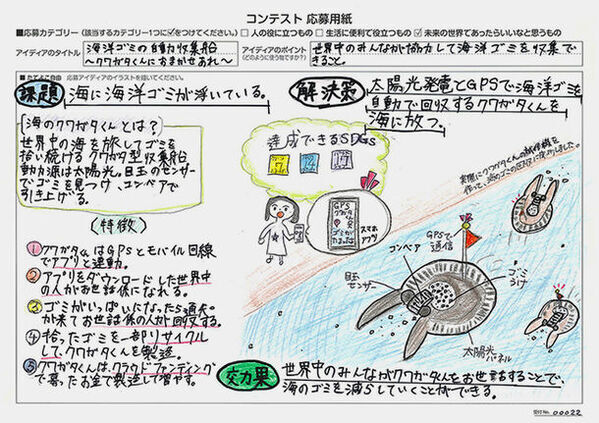 コンテスト 応募用紙
■応募カテゴリー(該当するカテゴリー1つに☑をつけてください。) □ 人の役に立つもの □ 生活に便利で役立つもの ☑ 未来の世界であったらいいなと思うもの
アイディアのタイトル
海洋ゴミの自動収集船
〜クワガタくんにおまかせあれ〜
アイディアのポイント
(どのように使う物ですか?)
世界中のみんなが協力して海洋ゴミを収集で
きること。
課題
海に海洋ゴミが浮いている。
解決策
太陽光発電とGPSで海洋ゴミを
自動で回収するクワガタくんを
海に放つ。
海のクワガタくんとは?
世界中の海を旅してゴミを
拾い続けるクワガタ型収集船
動力源は太陽光。目玉のセンサー
でゴミを見つけ、コンベアで
引き上げる。
(特徴)
①クワガタくんはGPSとモバイル回線
でアプリと連動。
②アプリをダウンロードした世界中
の人がお世話係になれる。
③ゴミがいっぱいになったら通知
が来てお世話係の人が回収する。
④拾ったゴミを一部リサイクル
して、クワガタくんを製造。
⑤クワガタくんは、クラウドファンディング
で募ったお金で製造して増やす。
達成できるSDGs
7
14
17
GPS
クワガタ
ゴミが
スマホ
アプリ
実際にクワガタくんの試作機を
作って、海のゴミの回収に成功しました。
GPSで
通信
コンベア
目玉
センサー
ゴミ
うけ
太陽光
パネル
効果
世界中のみんながクワガタくんをお世話することで、
海のゴミを減らしていくことができる。
受付No. 00022